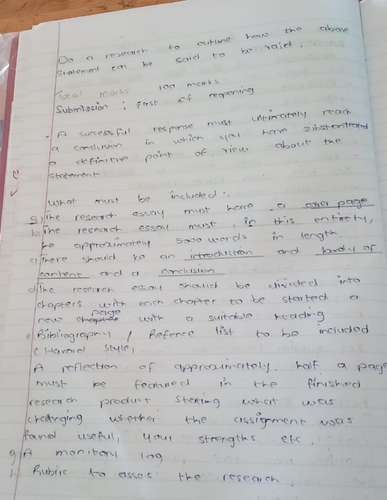 Do a research to outline how the above
Statement can be said to be valid.
Total marks 100 marks
Submission : first of reopening
A successful response must ultimately reach
a conclusion in which you have substantiated
a definitive point of view about the
statement.
What must be included:
a) The research essay must have a cover page
b) The research essay must, in this entirety,
be approximately 5000 words in length.
c) There should be an introduction and body of
content and a conclusion
d) The research essay should be divided into
chapters with each chapter to be started a
new page with a suitable heading
e Bibliography / Refence list to be included
(Harvard style)
A reflection of approximately half a page
must be featured in the finished
research product stating what was
challenging whether the assignment was
found useful, your strengths etc.
g A monitory log
h Rubric to asses the research.